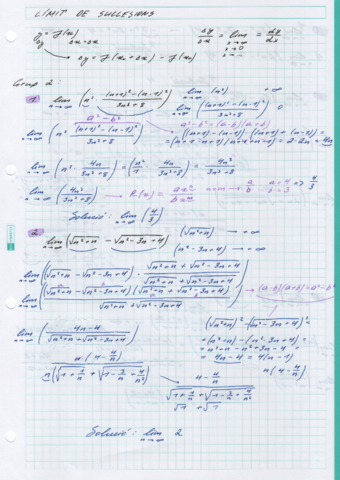 LÍMIT DE SUCCESIONS
y = f(x)
Δy
Δx+Δx
Δy = f(x+Δx) - f(x)
Δy/Δx = lim = dy/dx
Grup 2:
1 lim n→∞ (n · ((n+1)²-(n-1)²)/(3n²+8)) lim n→∞ (n²) +∞
lim n→∞ ((n+1)²-(n-1)²)/(3n²+8) 0
a²-b²
a²-b² = (a-b)(a+b)
lim n→∞ (n · ((n+1)²-(n-1)²)/(3n²+8)) = ((n+1)-(n-1))·((n+1)+(n-1)) =
= (n+1-n+1)(n+1+n-1) = 2·2n = 4n
lim n→∞ (n · 4n/(3n²+8)) = (n/1 · 4n/(3n²+8)) = 4n²/(3n²+8)
lim n→∞ (4n²/(3n²+8)) → R(x) = axⁿ/bxᵐ n=m → a/b a=4 b=3 => 4/3
Solució: lim n→∞ (4/3)
2 lim n→∞ (√(n²+n) - √(n²-3n+4)) (√(n²+n)) → +∞
(n²-3n+4) → +∞
lim n→∞ ((√(n²+n) - √(n²-3n+4)) · (√(n²+n) + √(n²-3n+4))/(√(n²+n) + √(n²-3n+4)))
lim n→∞ ((√(n²+n) - √(n²-3n+4))(√(n²+n) + √(n²-3n+4))/(√(n²+n) + √(n²-3n+4))) → (a-b)(a+b) = a²-b²
lim n→∞ ((4n-4)/(√(n²+n) + √(n²-3n+4)))
(√(n²+n))² - (√(n²-3n+4))² =
= (n²+n) - (n²-3n+4) =
= n²+n-n²+3n-4 =
= 4n-4 = 4(n-1)
n(4-4/n)
n(4-4/n)/(n(√(1+1/n) + √(1-3/n+4/n²)))
(4-4/n)/(√(1+1/n) + √(1-3/n+4/n²))
√1 + √1
Solució: lim n→∞ 2